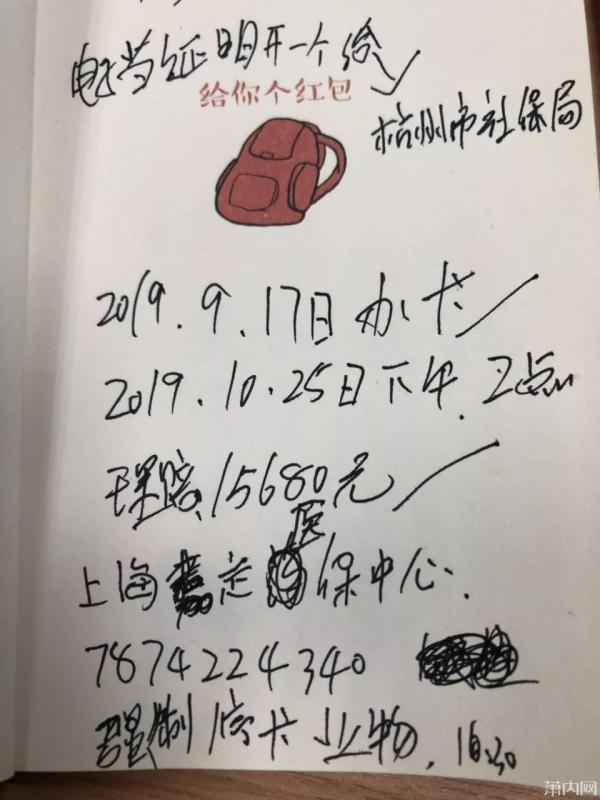 电子芳证明开一个给
给你个红包
杭州市社保局
2019.9.17日办卡
2019.10.25日下午.2点
理赔15680元
上海 医保中心.
7874224340
强制停卡 16:30
萧内网